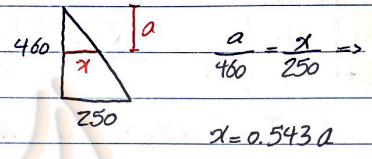 a
460
x
250
a/460 = x/250 =>
x=0.543a